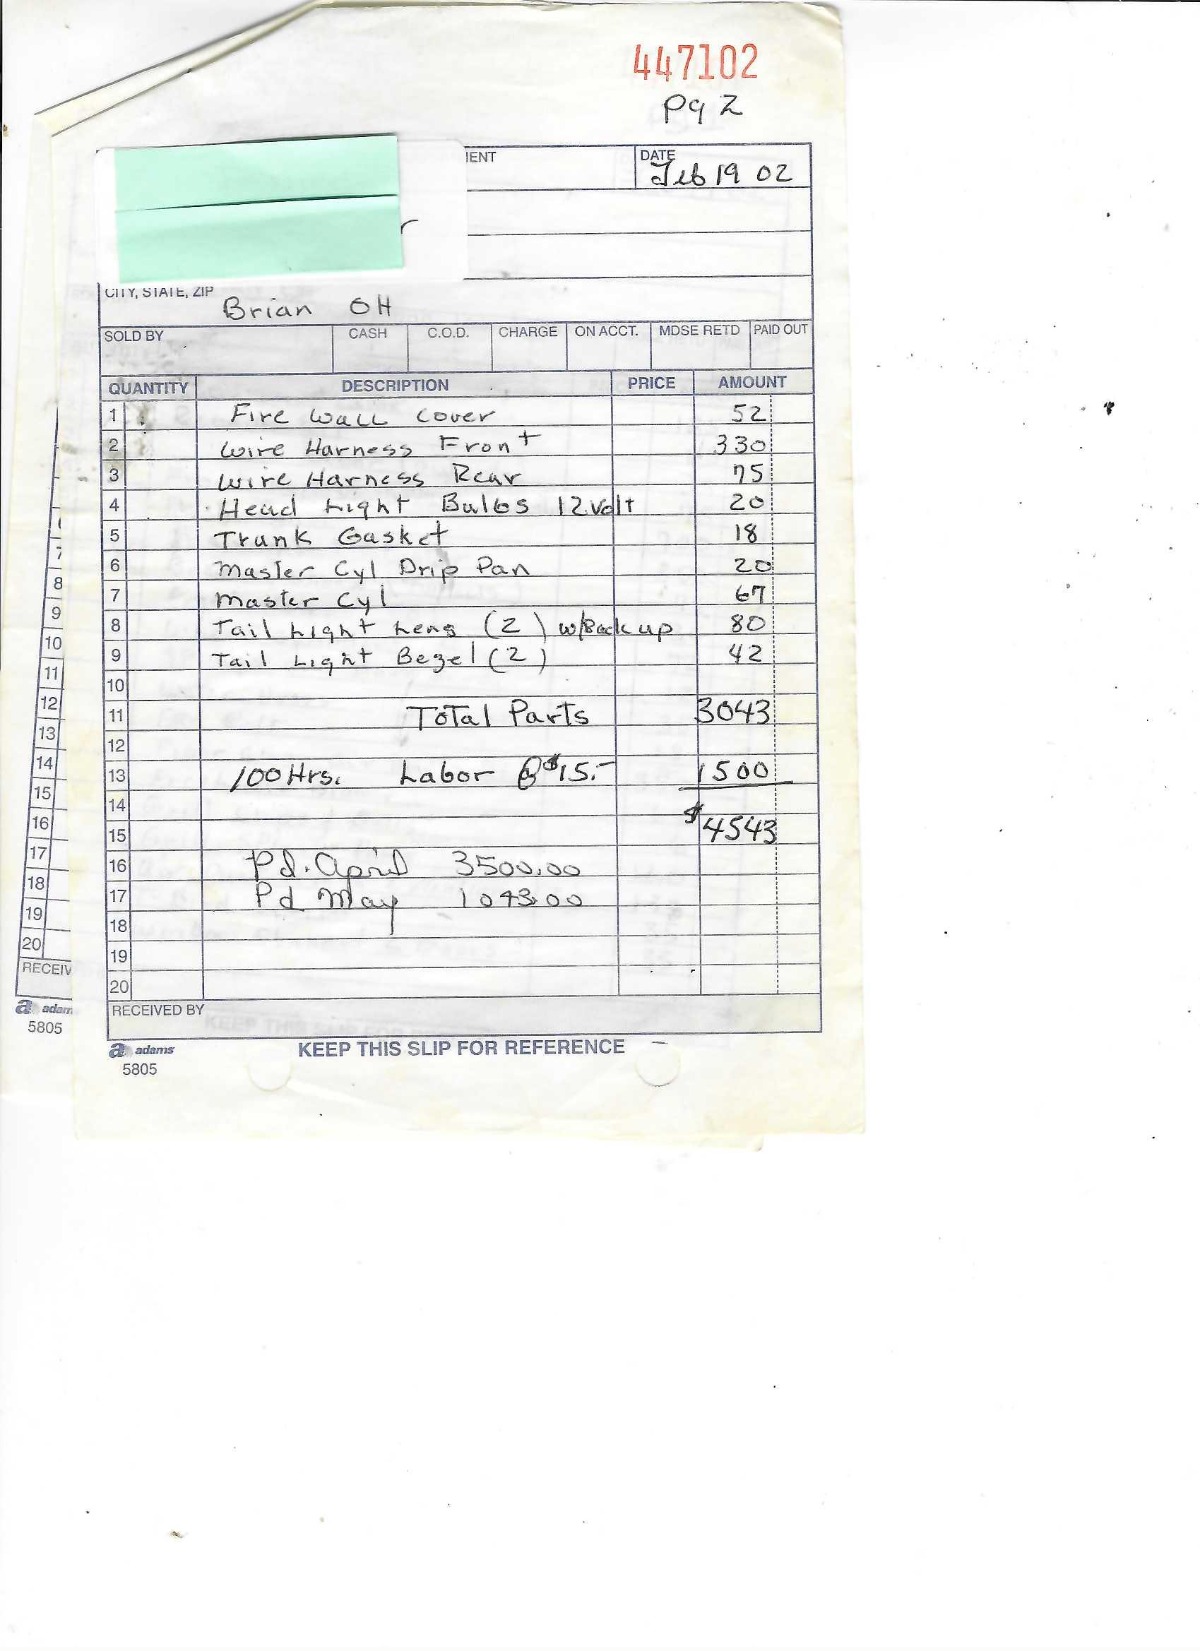 447102
Pg 2
DATE
Feb 19 02
CITY, STATE, ZIP
Brian OH
SOLD BY CASH C.O.D. CHARGE ON ACCT. MDSE RETD PAID OUT
QUANTITY DESCRIPTION PRICE AMOUNT
1 Fire Wall Cover 52
2 Wire Harness Front 330
3 Wire Harness Rear 75
4 Head Light Bulbs 12 Volt 20
5 Trunk Gasket 18
6 Master Cyl Drip Pan 20
7 Master Cyl 67
8 Tail Light Lens (2) w/Back up 80
9 Tail Light Bezel (2) 42
10
11 Total Parts 3043
12
13 100 Hrs. Labor @ $15.- 1500
14
15 $4543
16 Pd. April 3500.00
17 Pd May 1043.00
18
19
20
RECEIVED BY
adams
5805
KEEP THIS SLIP FOR REFERENCE
7
8
9
10
11
12
13
14
15
16
17
18
19
20
RECEIV
adam
5805